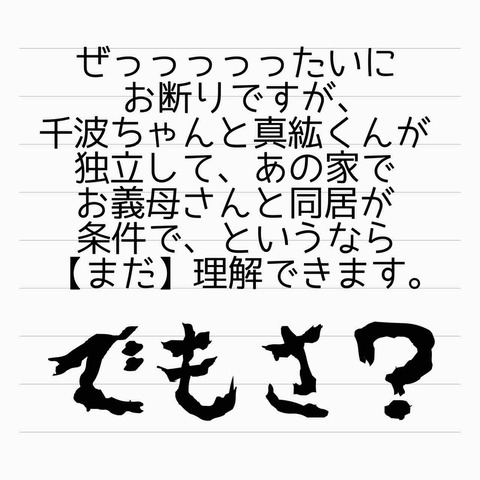 ぜっっっっったいに
お断りですが、
千波ちゃんと真紘くんが
独立して、あの家で
お義母さんと同居が
条件で、というなら
【まだ】理解できます。
でもさ?